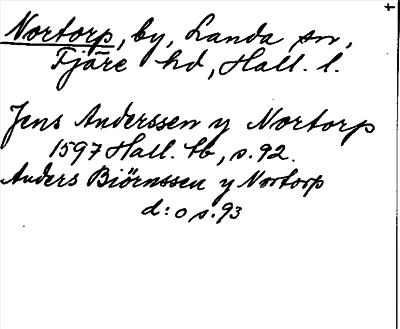 Nortorp, by, Landa sn,
Fjäre hd, Hall. l.
Jens Anderssen y Nortorp
1597 Hall. tb, s. 92.
Anders Biörnssen y Nortorp
d:o s. 93